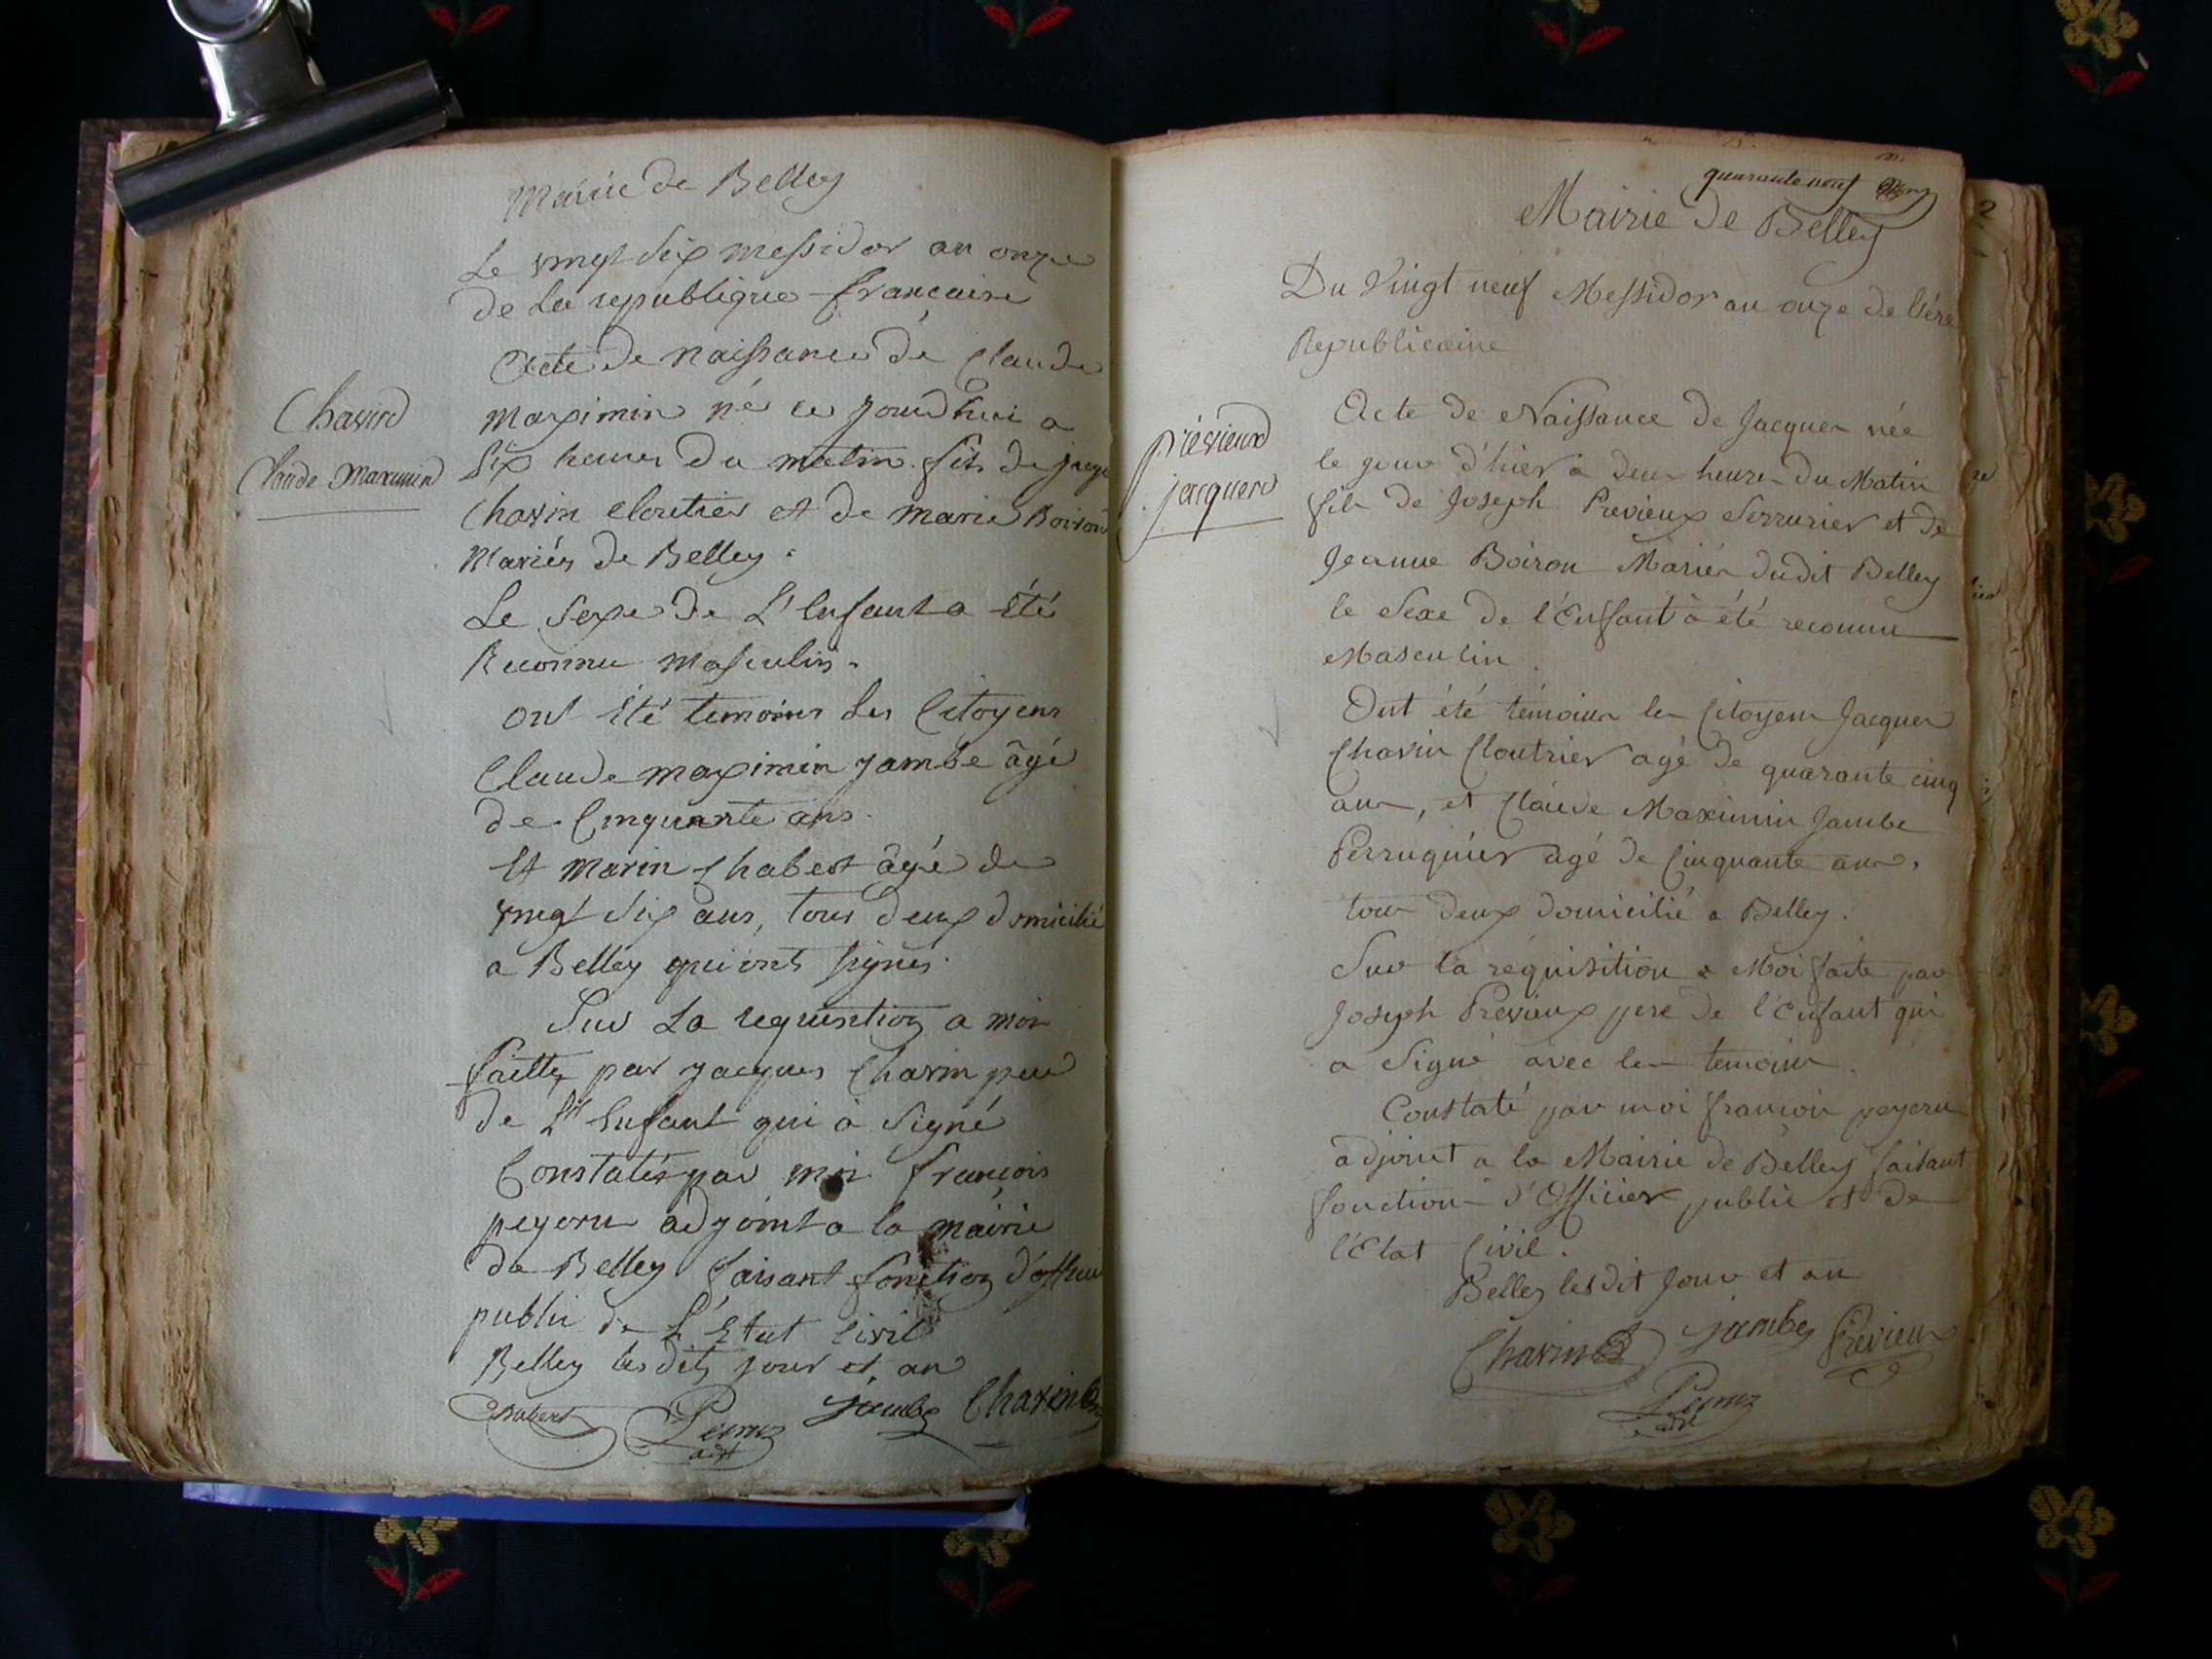 Mairie de Belley
Le vingt six messidor an onze
de La republique francaise
Acte de naissance de Claude
Chavin
Claude Maximin
maximin né ce jourdhui a
six heures du matin fils de jacq
Chavin cloutier et de marie Boiron
Mariés de Belley.
Le Sexe de L'enfant a été
Reconnu masculin.
ont été temoins Les Citoyens
Claude maximin jambe âgé
de Cinquante ans.
Et marin Chabert âgé de
vingt six ans, tous deux domicilié
a Belley qui ont signés.
Sur La requisition a moi
faitte par jacques Chavin pere
de L'enfant qui à signé
Constatés par moi françois
peyron adjoint a la mairie
de Belley faisant fonction d'officier
public de L'Etat Civil
Belley les dits jour et an
Chabert
jambe Chavin
quarante neuf
Mairie de Belley
Du Vingt neuf Messidor an onze de l'ére
Republicaine
Prévieux
jacques
Acte de Naissance de Jacques née
le jour d'hier à deux heures du Matin
fils de Joseph Prévieux Serrurier et de
Jeanne Boiron Mariés dudit Belley
le Sexe de l'Enfant à été reconnu
Masculin.
Ont été témoins les Citoyens Jacques
Chavin Cloutrier agé de quarante cinq
ans, et Claude Maximin Jambe
Perruquier agé de Cinquante ans,
tous deux domicilié a Belley.
Sur la réquisition a Moi faite par
Joseph Prévieux pere de l'Enfant qui
a Signé avec les temoins.
Constaté par moi françois peyron
adjoint a la Mairie de Belley faisant
fonction d'Officier public et de
l'Etat Civil.
Belley lesdit Jour et an
Chavin jambe Prévieux